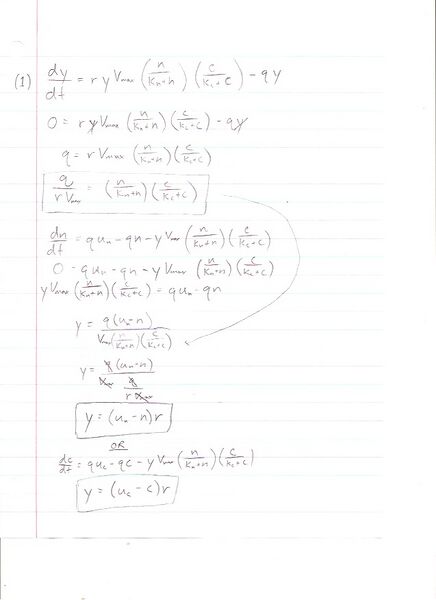 (1) dy/dt = r y Vmax (n/(Kn+n)) (c/(Kc+c)) - qy
0 = r y Vmax (n/(Kn+n)) (c/(Kc+c)) - qy
q = r Vmax (n/(Kn+n)) (c/(Kc+c))
q/(r Vmax) = (n/(Kn+n)) (c/(Kc+c))
dn/dt = qun - qn - y Vmax (n/(Kn+n)) (c/(Kc+c))
0 = qun - qn - y Vmax (n/(Kn+n)) (c/(Kc+c))
y Vmax (n/(Kn+n)) (c/(Kc+c)) = qun - qn
y = q(un-n)/(Vmax (n/(Kn+n)) (c/(Kc+c)))
y = q(un-n)/(Vmax q/(r Vmax))
y = (un - n)r
OR
dc/dt = quc - qc - y Vmax (n/(Kn+n)) (c/(Kc+c))
y = (uc - c)r